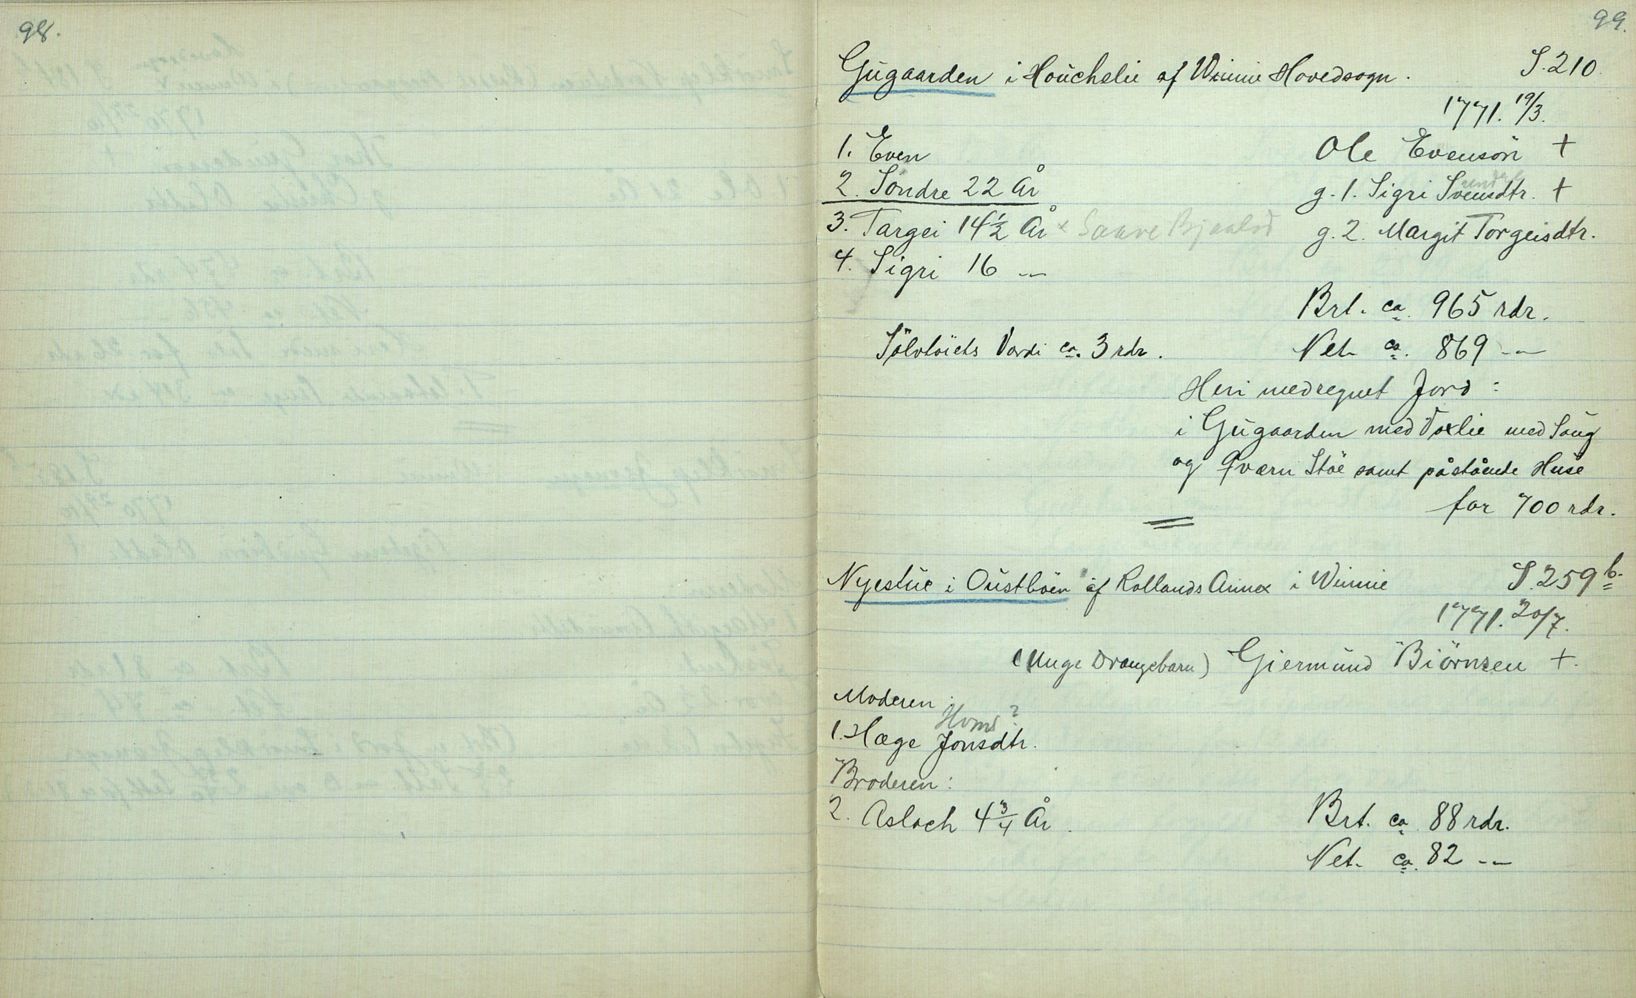 98.
99.
Gügaarden i Houchelie af Winnie Hovedsogn. S. 210.
1771. 19/3.
1. Even
Ole Evensön +
2. Söndre 22 År
g. 1. Sigri Svensdtr. +
3. Targei 14 1/2 År x Saave Bjaaland
g. 2. Margit Torgeisdtr.
4. Sigri 16 —
Brt. ca. 965 rdr.
Sölvtöiets Værdi ca. 3 rdr.
Net. ca. 869 —
Heri medregnet Jord:
i Gügaarden med Voxlie med Saug
og Qværn Stöe samt påstående Huse
for 700 rdr.
Nyestüe i Oüstböen af Rollands Annex i Winnie S. 259 b.
1771. 20/7.
(Unge Drængebarn) Giermünd Biörnsen +.
Moderen:
1. Hæge Jonsdtr.
Broderen:
2. Asloch 4 3/4 År.
Brt. ca. 88 rdr.
Net. ca. 82 —